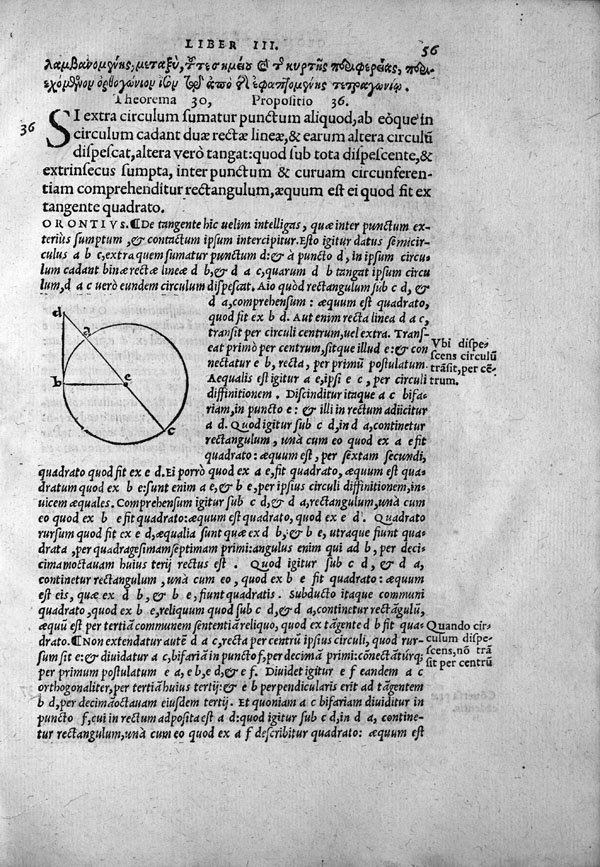 LIBER III.
56
λαμβανομένης, μεταξὺ, τοῦτε σημείου καὶ τῆς κυρτῆς περιφερείας, περιεχόμενον ὀρθογώνιον ἴσον τῷ ἀπὸ τῆς ἐφαπτομένης τετραγώνῳ.
Theorema 30, Propositio 36.
36
SI extra circulum sumatur punctum aliquod, ab eóque in
circulum cadant duæ rectæ lineæ, & earum altera circulũ
dispescat, altera verò tangat: quod sub tota dispescente, &
extrinsecus sumpta, inter punctum & curuam circunferen-
tiam comprehenditur rectangulum, æquum est ei quod fit ex
tangente quadrato.
ORONTIVS. ¶De tangente hic uelim intelligas, quæ inter punctum ex-
terius sumptum, & contactum ipsum intercipitur. Esto igitur datus semicir-
culus a b c, extra quem sumatur punctum d: & à puncto d, in ipsum circu-
lum cadant binæ rectæ lineæ d b, & d a c, quarum d b tangat ipsum circu
lum, d a c uerò eundem circulum dispescat. Aio quòd rectangulum sub c d, &
d a, comprehensum : æquum est quadrato,
quod fit ex b d. Aut enim recta linea d a c,
transit per circuli centrum, uel extra. Trans-
eat primò per centrum, sitque illud e: & con
nectatur e b, recta, per primũ postulatum.
Aequalis est igitur a e, ipsi e c, per circuli
diffinitionem. Discinditur itaque a c bifa-
riam, in puncto e: & illi in rectum adiicitur
a d. Quod igitur sub c d, in d a, continetur
rectangulum, unà cum eo quod ex a e fit
quadrato: æquum est, per sextam secundi,
Vbi dispe-
scens circulũ
trãsit, per cẽ-
trum.
d
a
b
e
c
quadrato quod fit ex e d. Ei porrò quod ex a e, fit quadrato, æquum est qua-
dratum quod ex b e: sunt enim a e, & b e, per ipsius circuli diffinitionem, in-
uicem æquales. Comprehensum igitur sub c d, & d a, rectangulum, unà cum
eo quod ex b e fit quadrato: æquum est quadrato, quod ex e d. Quadrato
rursum quod fit ex e d, æqualia sunt quæ ex d b, & b e, utraque fiunt qua-
drata, per quadragesimamseptimam primi: angulus enim qui ad b, per deci-
mamoctauam huius terij rectus est. Quod igitur sub c d, & d a,
continetur rectangulum, unà cum eo, quod ex b e fit quadrato: æquum
est eis, quæ ex d b, & b e, fiunt quadratis. Subducto itaque communi
quadrato, quod ex b e, reliquum quod sub c d, & d a, continetur rectãgulũ,
æquũ est per tertiã communem sententiã reliquo, quod ex tãgente d b fit qua-
drato. ¶Non extendatur autẽ d a c, recta per centrũ ipsius circuli, quod rur-
sum sit e: & diuidatur a c, bifariã in puncto f, per decimã primi: cõnectãturq;
per primum postulatum e a, e b, e d, & e f. Diuidet igitur e f eandem a c
orthogonaliter, per tertiã huius tertij: & e b perpendicularis erit ad tãgentem
b d, per decimãoctauam eiusdem tertij. Et quoniam a c bifariam diuiditur in
puncto f, cui in rectum adposita est a d: quod igitur sub c d, in d a, contine-
tur rectangulum, unà cum eo quod ex a f describitur quadrato: æquum est
Quando cir-
culum dispe-
scens, nõ trã
sit per centrũ